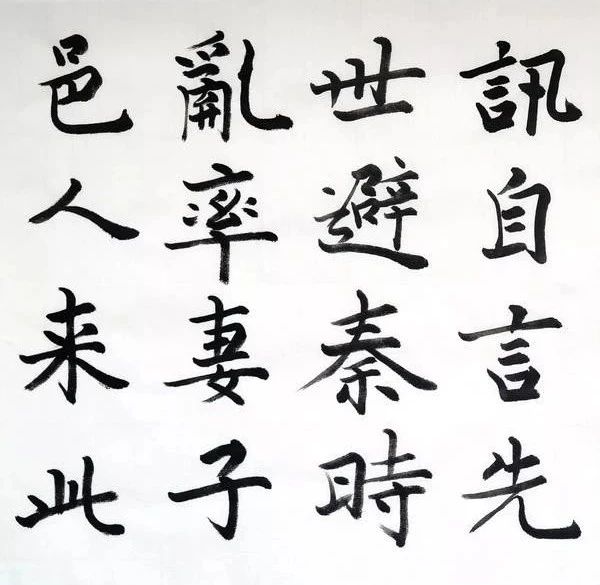 訊自言先
世避秦時
亂率妻子
邑人来此